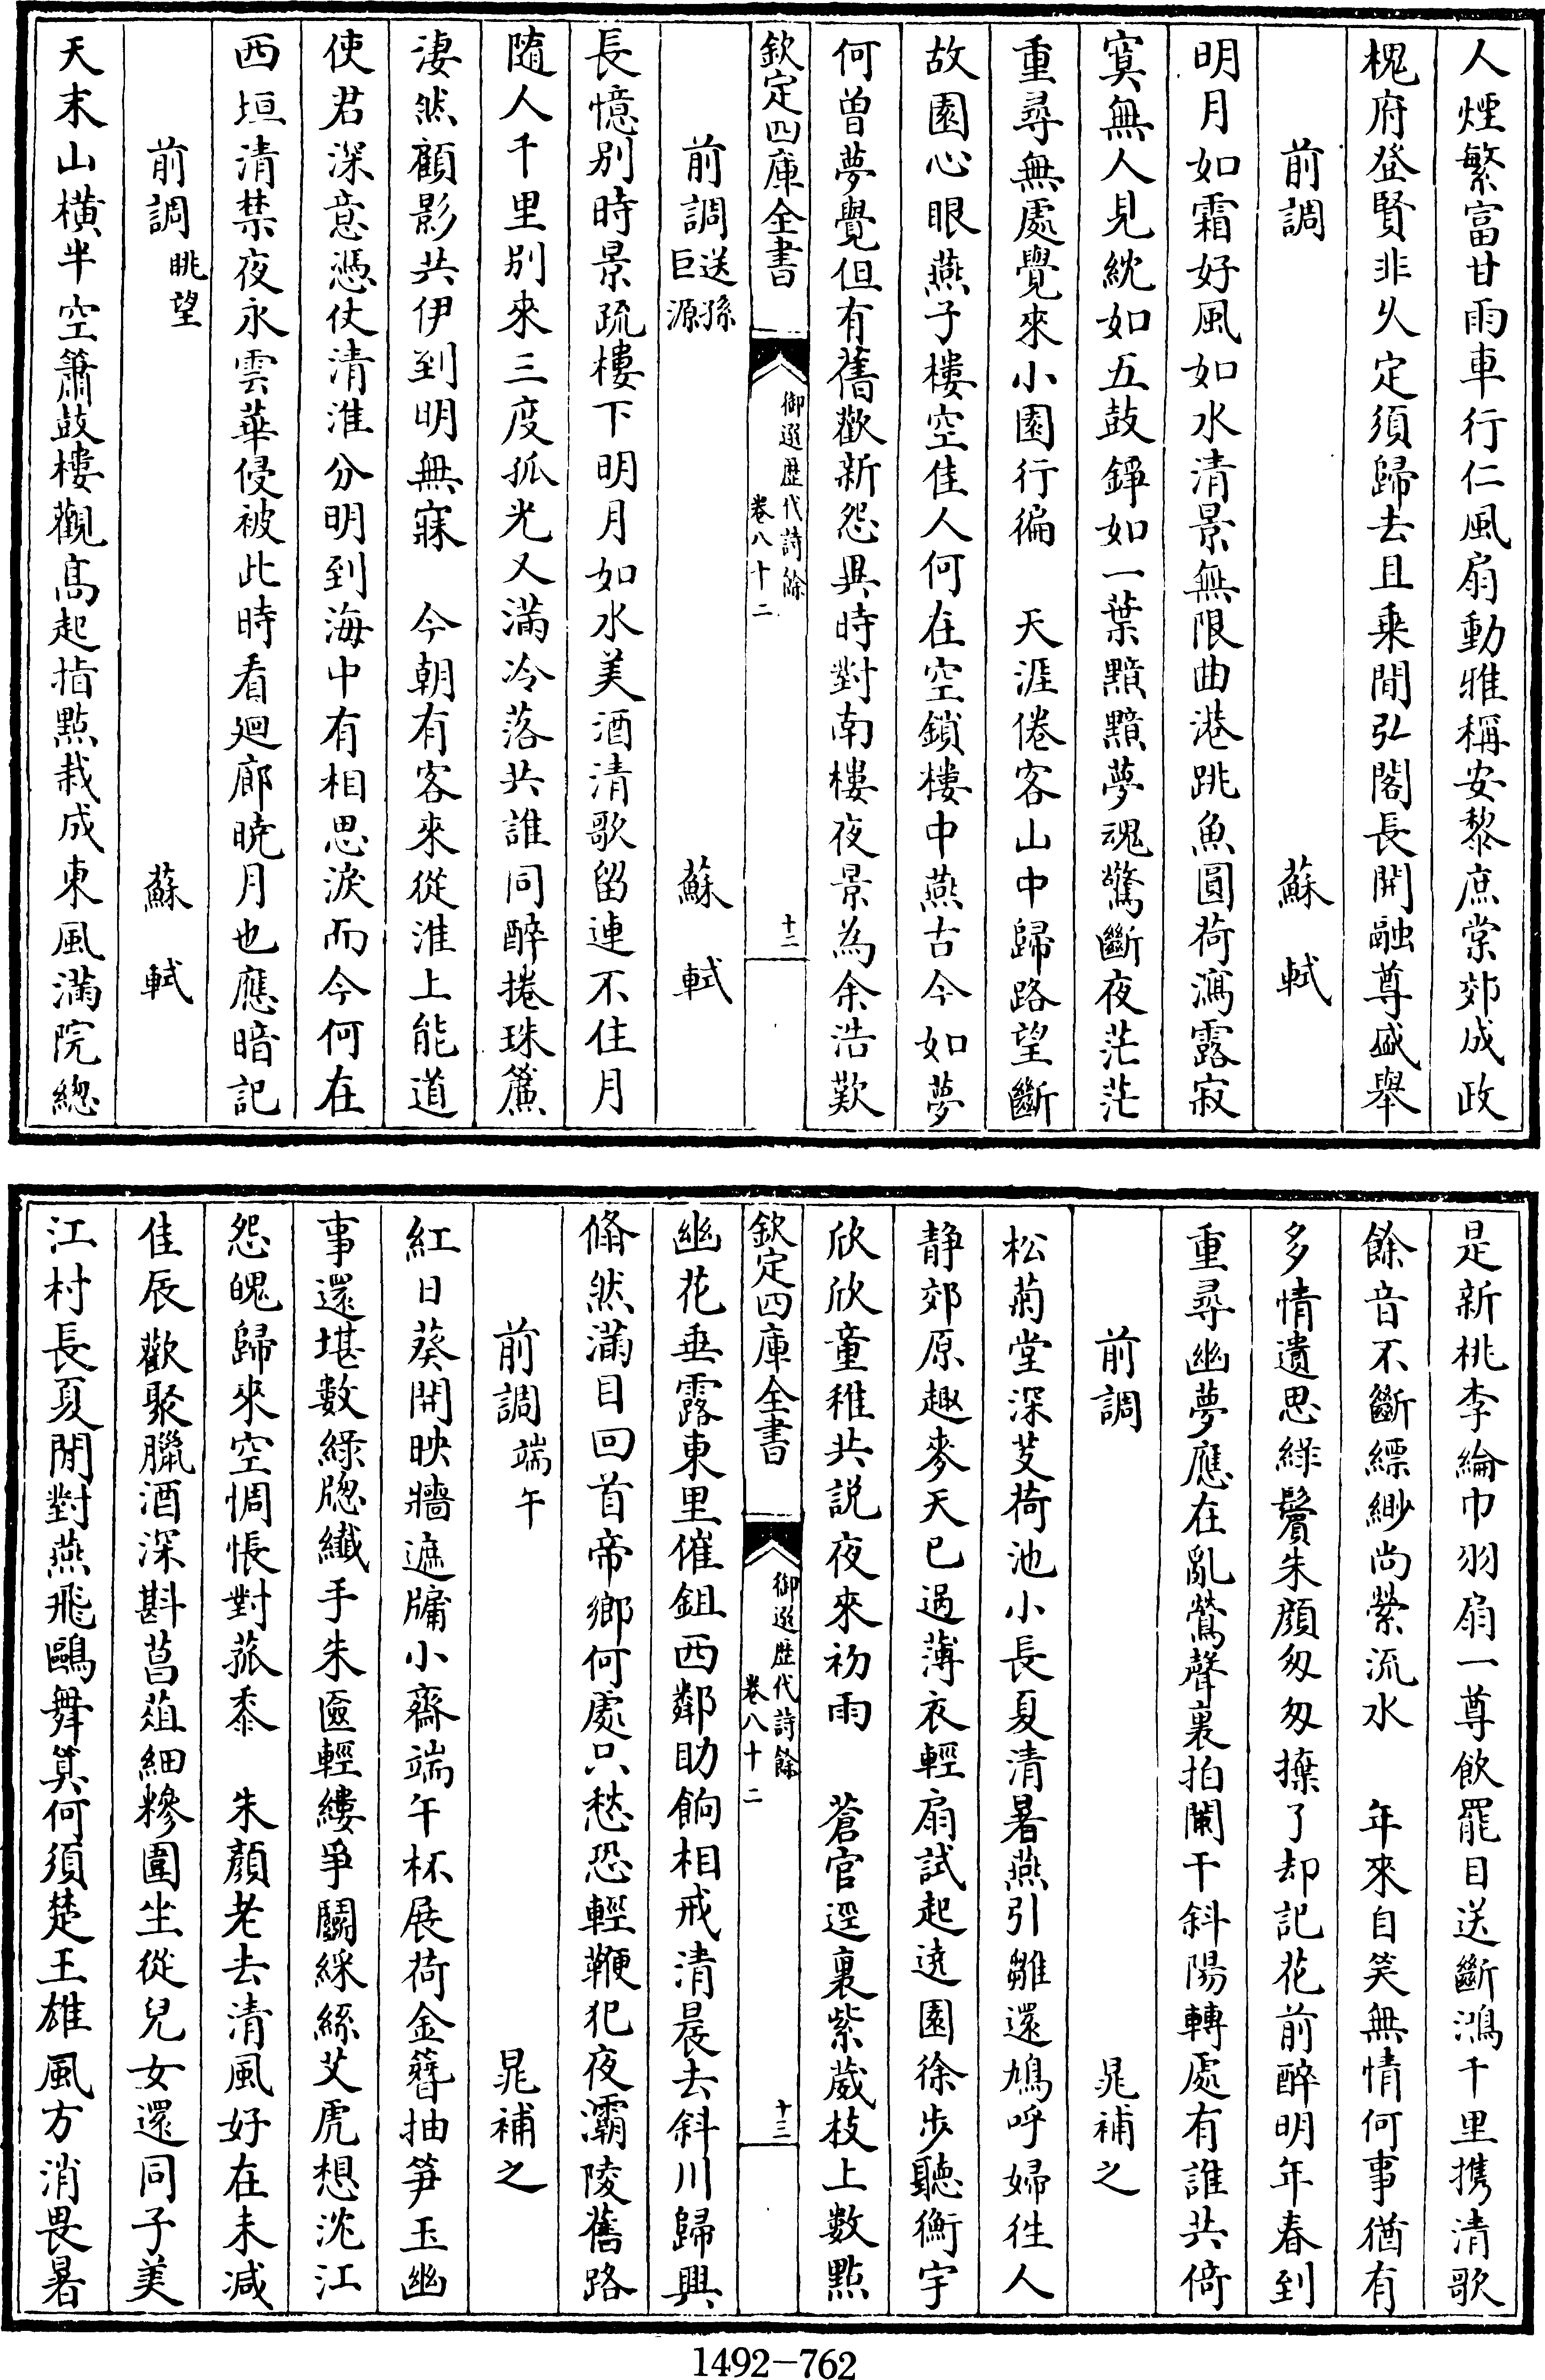 人煙繁富甘雨車行仁風扇動雅稱安黎庶棠郊成政
槐府登賢非久定須歸去且乘閒弘閣長開融尊盛舉
前調　蘇　軾
明月如霜好風如水清景無限曲港跳魚圓荷瀉露寂
寞無人見紞如五鼓錚如一葉黯黯夢魂驚斷夜茫茫
重尋無處覺來小園行徧　天涯倦客山中歸路望斷
故園心眼燕子樓空佳人何在空鎖樓中燕古今如夢
何曽夢覺但有舊歡新怨異時對南樓夜景為余浩歎
欽定四庫全書　御選歴代詩餘　卷八十二　十二
前調送孫巨源　蘇　軾
長憶别時景疏樓下明月如水美酒清歌留連不住月
隨人千里别來三度孤光又滿冷落共誰同醉捲珠簾
淒然顧影共伊到明無寐　今朝有客來從淮上能道
使君深意憑仗清淮分明到海中有相思淚而今何在
西垣清禁夜永雲華侵被此時看廻廊曉月也應暗記
前調眺望　蘇　軾
天末山横半空簫鼓樓觀髙起指點栽成東風滿院總
是新桃李綸巾羽扇一尊飲罷目送斷鴻千里攜清歌
餘音不斷縹緲尚縈流水　年來自笑無情何事猶有
多情遺思綠鬢朱顔匆匆拚了却記花前醉明年春到
重尋幽夢應在亂鶯聲裏拍闌干斜陽轉處有誰共倚
前調　晁補之
松菊堂深芰荷池小長夏清暑燕引雛還鳩呼婦往人
静郊原趣麥天已過薄衣輕扇試起遶園徐步聽衡宇
欣欣童稚共説夜來初雨　蒼官逕裏紫葳枝上數點
欽定四庫全書　御選歴代詩餘　卷八十二　十三
幽花垂露東里催鉏西鄰助餉相戒清晨去斜川歸興
翛然滿目回首帝鄉何處只愁恐輕鞭犯夜灞陵舊路
前調端午　晁補之
紅日葵開映牆遮牖小齋端午杯展荷金簪抽笋玉幽
事還堪數綠牕纖手朱奩輕縷爭鬭綵絲艾虎想沈江
怨魄歸來空惆悵對菰黍　朱顔老去清風好在未減
佳辰歡聚臘酒深斟菖葅細糝圍坐從兒女還同子美
江村長夏閒對燕飛鷗舞算何須楚王雄風方消畏暑
1492-762